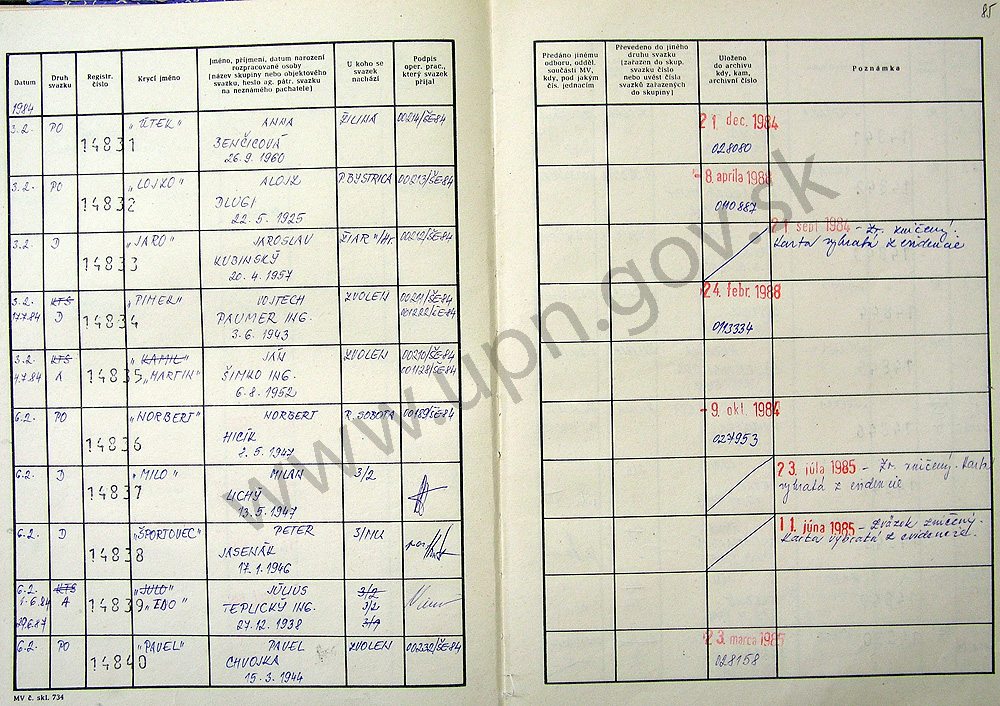 85
Datum
Druh svazku
Registr. číslo
Krycí jméno
Jméno, příjmení, datum narození rozpracované osoby (název skupiny nebo objektového svazku, heslo ag. pátr. svazku na neznámého pachatele)
U koho se svazek nachází
Podpis oper. prac., který svazek přijal
Předáno jinému odboru, odděl. součásti MV, kdy, pod jakým čís. jednacím
Převedeno do jiného druhu svazku (zařazen do skup. svazku číslo nebo uvést čísla svazků zařazených do skupiny)
Uloženo do archivu kdy, kam, archivní číslo
Poznámka
1984
3.2. PO 14831 "ÚTEK" ANNA ŽILINA 00214/ŠE-84 21. dec. 1984
BENČICOVÁ 028080
26.9.1960
3.2. PO 14832 "LOJZO" ALOJZ P. BYSTRICA 00213/ŠE-84 - 8. apríla 1988
DLUGI 0110887
22.5.1925
3.2. D 14833 "JARO" JAROSLAV ŽIAR n/Hr. 00212/ŠE-84 21. sept 1984 - Zr. zničený.
KUBINSKÝ Karta vybratá z evidencie
20.4.1957
3.2. KTS 14834 "PIMER" VOJTECH ZVOLEN 00211/ŠE-84 24. febr. 1988
17.7.84 D PAUMER ING. 001222/ŠE-84 0113334
3.6.1943
3.2. KTS 14835 "KAMIL" JÁN ZVOLEN 00210/ŠE-84
4.7.84 A "MARTIN" ŠIMKO ING. 001128/ŠE-84
6.8.1952
6.2. PO 14836 "NORBERT" NORBERT R. SOBOTA 00189/ŠE-84 - 9. okt. 1984
HICÍK 027953
2.5.1947
6.2. D 14837 "MILO" MILAN 3/2 23. júla 1985 - Zr. zničený. Karta
LICHÝ vybratá z evidencie
13.5.1947
6.2. D 14838 "ŠPORTOVEC" PETER 3/MU 11. júna 1985 - Zväzok zničený.
JASENÁK Karta vybratá z evidencie.
17.1.1946
6.2. KTS 14839 "JULO" JÚLIUS 3/2
1.6.84 A "EDO" TEPLICKÝ ING. 3/2
29.6.87 27.12.1938 3/1
6.2. PO 14840 "PAVEL" PAVEL ZVOLEN 00232/ŠE-84 23. marca 1985
CHVOJKA 028158
15.3.1944
MV č. skl. 734
www.upn.gov.sk